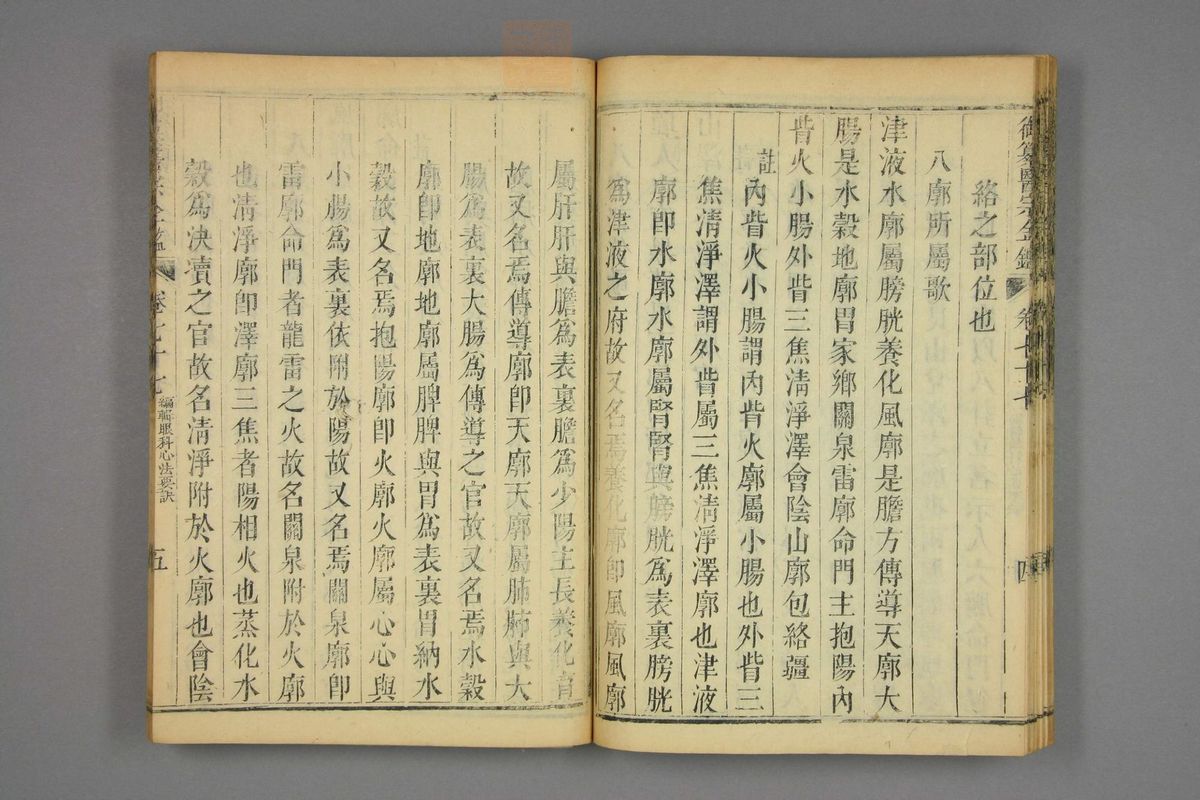 御纂醫宗金鑑 卷七十七 四
絡之部位也
八廓所屬歌
津液水廓屬膀胱養化風廓是膽方傳導天廓大
腸是水穀地廓胃家鄉關泉雷廓命門主抱陽內
眥火小腸外眥三焦清淨澤會陰山廓包絡疆
註內眥火小腸謂內眥火廓屬小腸也外眥三
焦清淨澤謂外眥屬三焦清淨澤廓也津液
廓卽水廓水廓屬腎腎與膀胱爲表裏膀胱
爲津液之府故又名焉養化廓卽風廓風廓
屬肝肝與膽爲表裏膽爲少陽主長養化育
故又名焉傳導廓卽天廓天廓屬肺肺與大
腸爲表裏大腸爲傳導之官故又名焉水穀
廓卽地廓地廓屬脾脾與胃爲表裏胃納水
穀故又名焉抱陽廓卽火廓火廓屬心心與
小腸爲表裏依附於陽故又名焉關泉廓卽
雷廓命門者龍雷之火故名關泉附於火廓
也清淨廓卽澤廓三焦者陽相火也蒸化水
穀爲決瀆之官故名清淨附於火廓也會陰
卷七十七 編輯眼科心法要訣 五